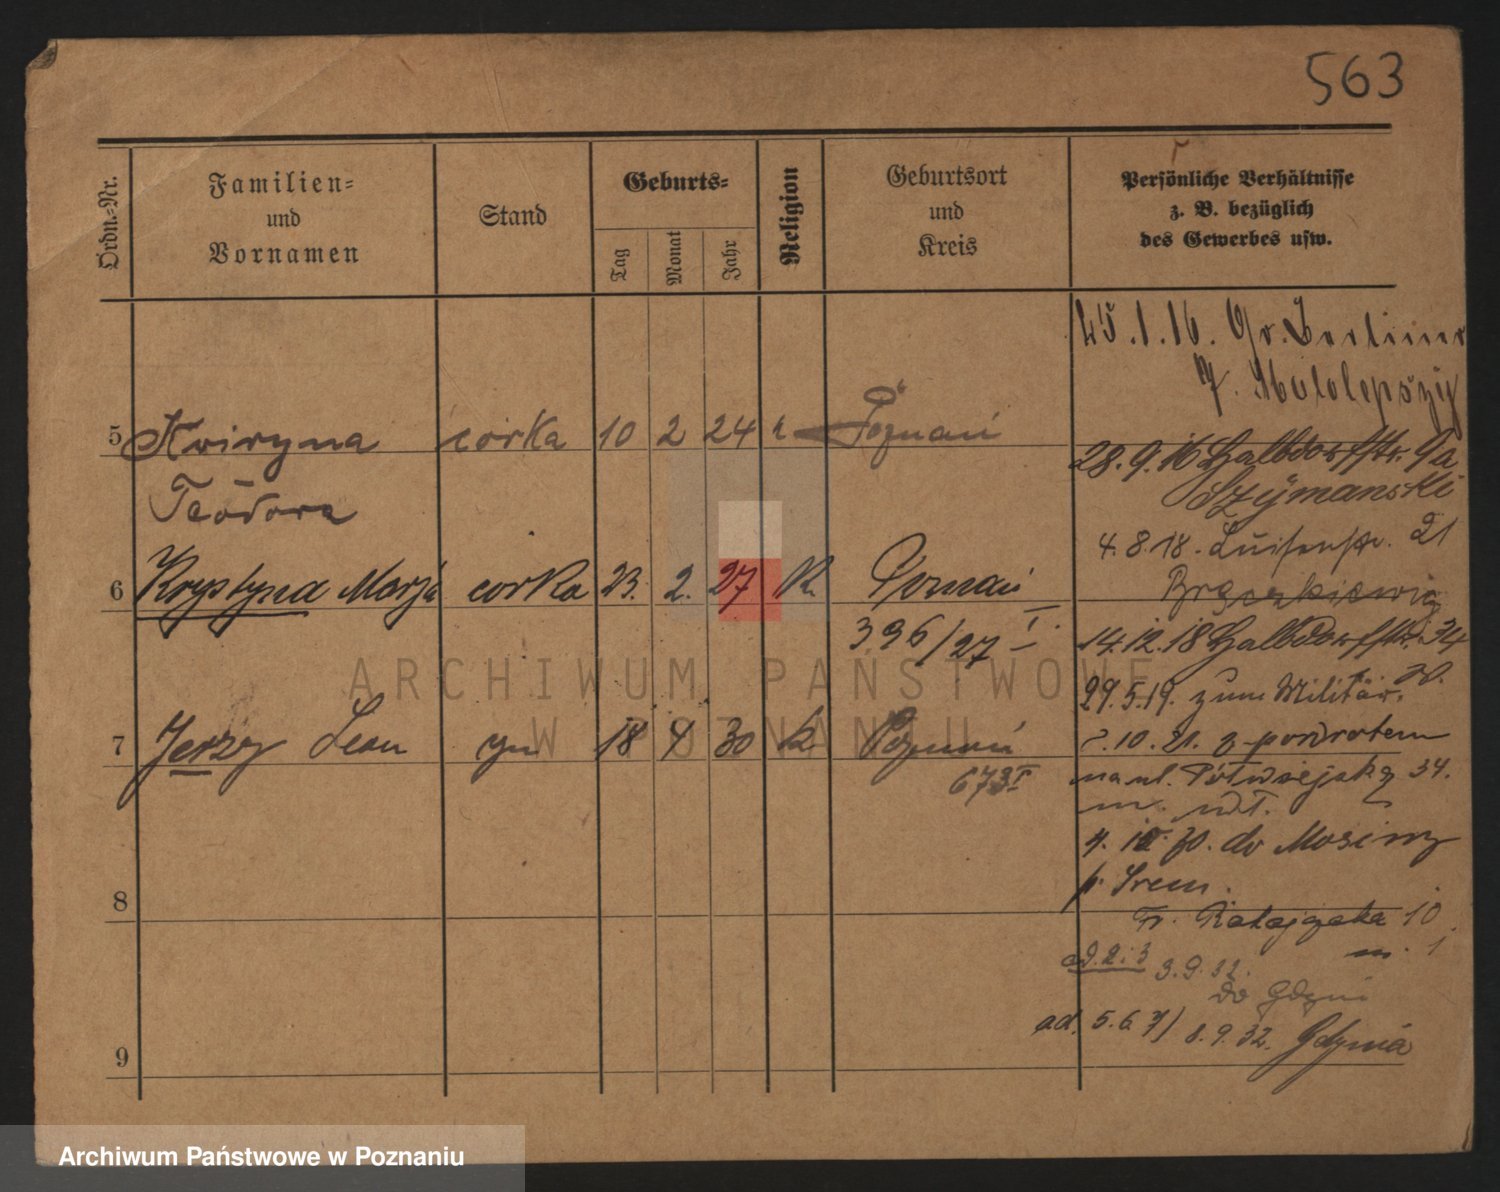 563
Ordn.-Nr.
Familien-
und
Vornamen
Stand
Geburts-
Tag
Monat
Jahr
Religion
Geburtsort
und
Kreis
Persönliche Verhältnisse
z. B. bezüglich
des Gewerbes usw.
5 Kwiryna córka 10 2 24 Poznań
Teodora
6 Krystyna Marja corka 23. 2. 27 K. Poznań
396/27 I.
7 Jerzy Leon syn 18 4 30 k. Poznań
673 I
8
9
25.1.16. Gr. Berliner
28.9.16 Halbdorfstr. 9a
Szymanski
4.8.18. Luisenstr. 21
14.12.18 Halbdorfstr. 34
29.5.19. zum Militär.
10.21. z powrotem
na ul. 34.
4. 10. 30. do Mosiny
p. Śrem.
Fr. Ratajczaka 10
m. 1
ad. 2 i 3 3.9.32.
do Gdyni
ad. 5. 6 7/ 8.9.32. Gdynia
ARCHIWUM PAŃSTWOWE
W POZNANIU
Archiwum Państwowe w Poznaniu